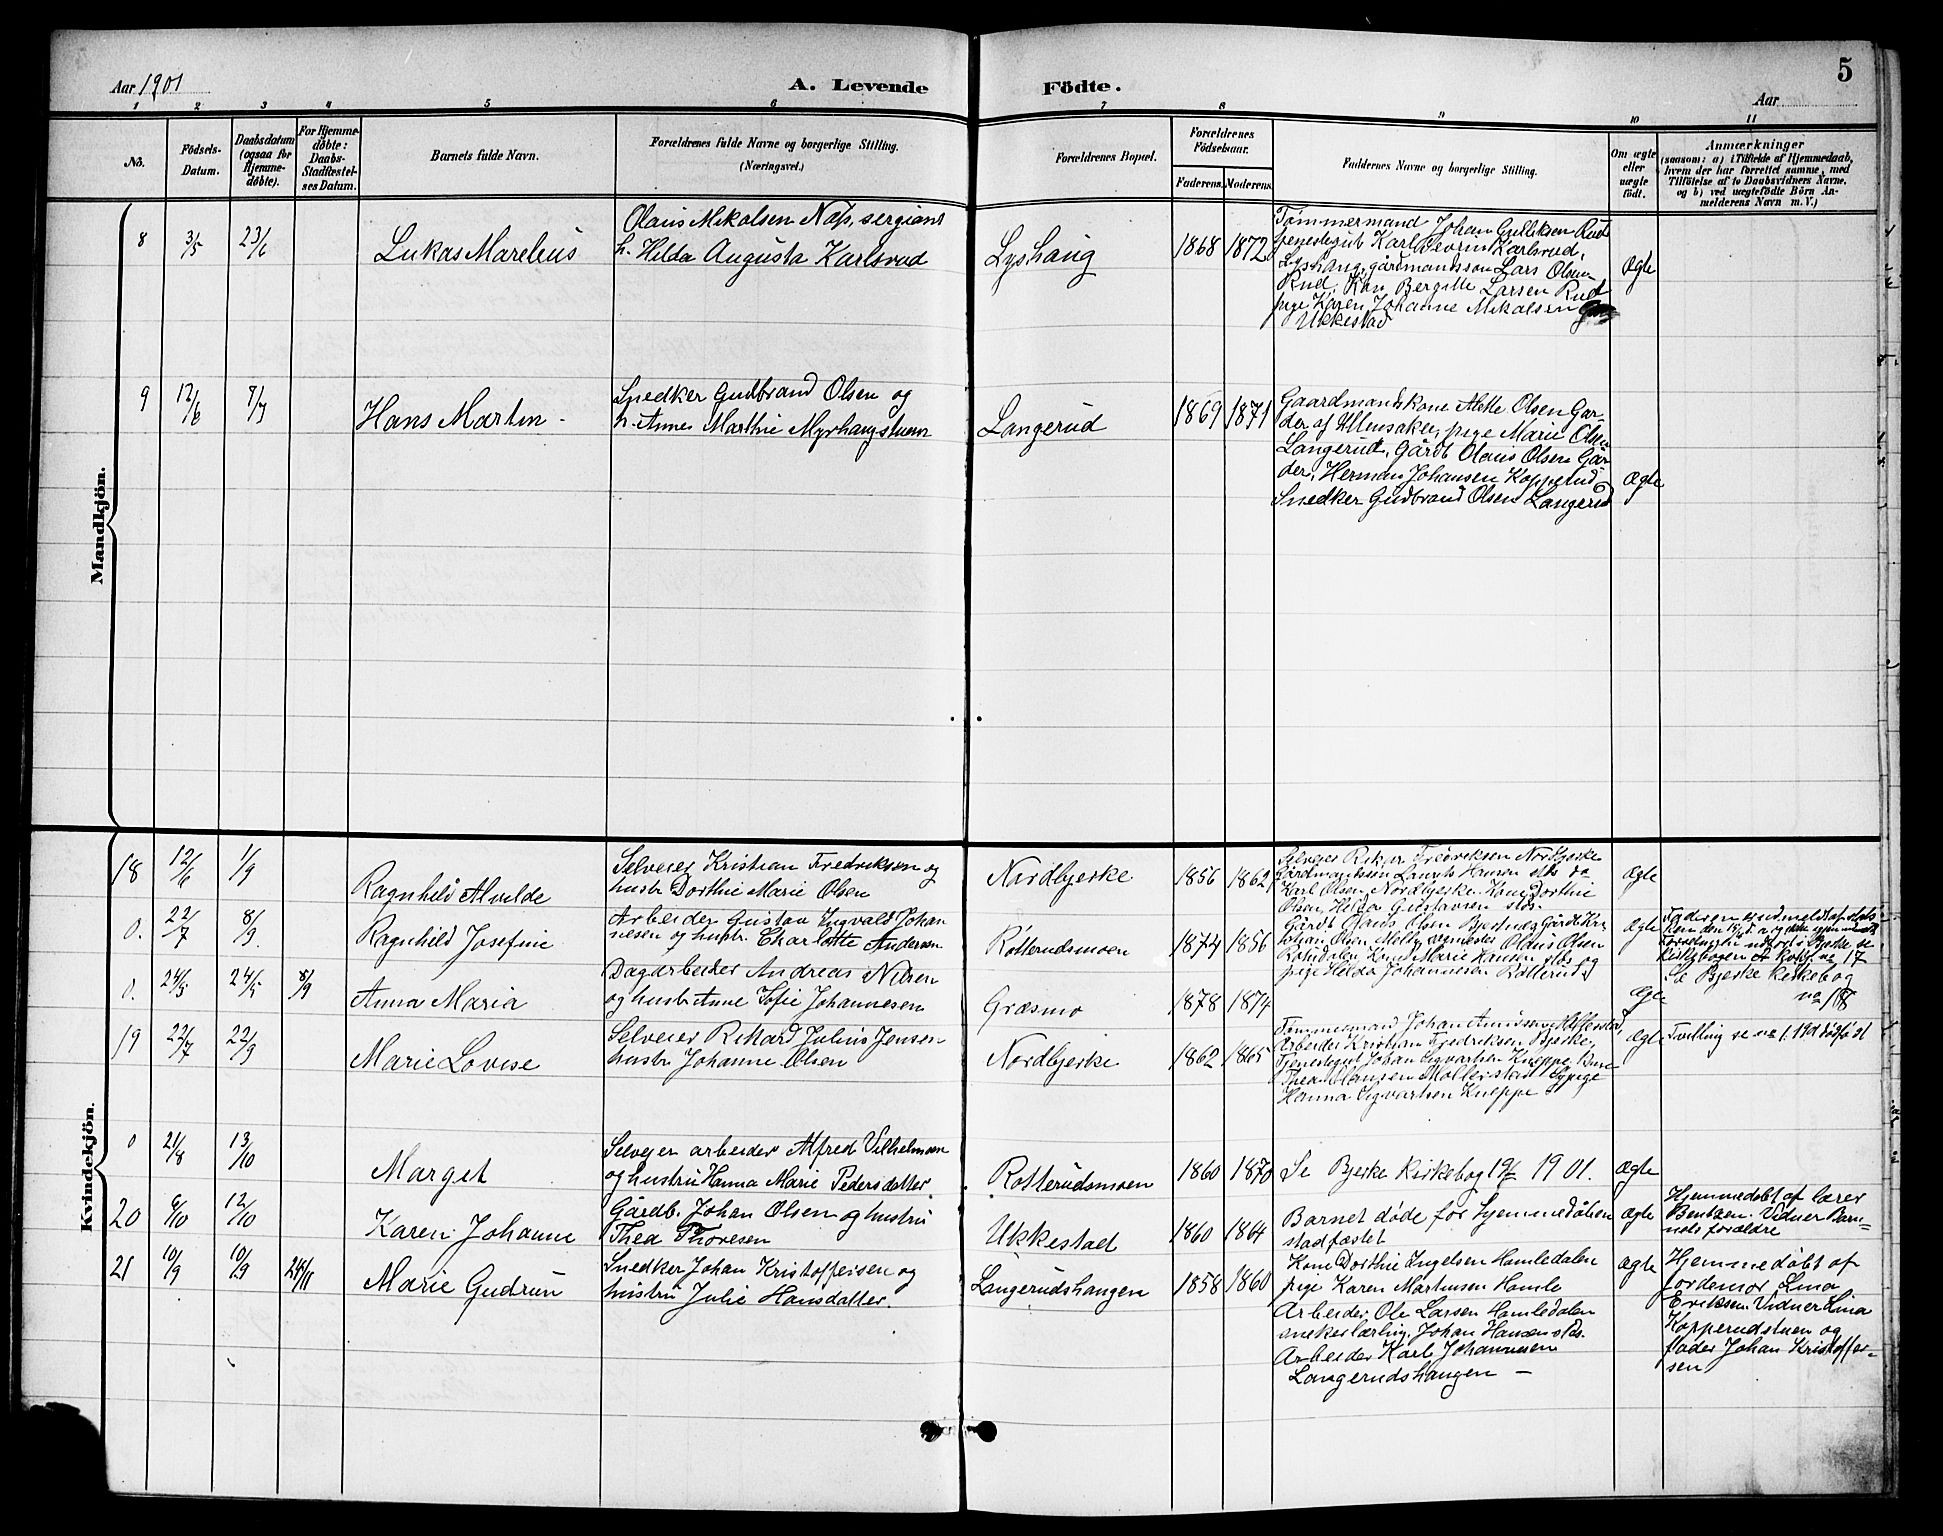 Aar 1901
A. Levende Födte.
5
Aar
1 2 3 4 5 6 7 8 9 10 11
No.
Födsels-Datum.
Daabsdatum (ogsaa for Hjemme-döbte).
For Hjemme-döbte: Daabs-Stadfæstel-ses Datum.
Barnets fulde Navn.
Forældrenes fulde Navne og borgerlige Stilling.
(Næringsvei.)
Forældrenes Bopæl.
Forældrenes Födselsaar.
Faderens. Moderens.
Faddernes Navne og borgerlige Stilling.
Om ægte eller uægte födt.
Anmærkninger
(saasom: a) i Tilfælde af Hjemmedaab,
hvem der har forrettet samme, med
Tilföielse af to Daabsvidners Navne,
og b) ved uægtefödte Börn An-
melderens Navn m. V.)
Mandkjön.
8 3/5 23/6
Lukas Marelius
Olaus Mikalsen Næs, sergiant
h. Hilda Augusta Karlsrud
Lyshaug
1868 1872
Tømmermand Johan Gulliksen Rud
tjenestegut Karl Severin Karlsrud,
Lyshaug, gårdmandssøn Lars Olsen
Rud, Kon Bergitte Larsen Rud
pige Karen Johanne Mikalsen
Ukkestad
Ægte
9 12/6 7/7
Hans Martin -
Snedker Gudbrand Olsen og
h. Anne Marthie Myrhaugstuen
Langerud
1869 1871
Gaardmandskone Mette Olsen Gar-
der af Ullensaker, pige Marie Olsen
Langerud, Gårdb Olaus Olsen Gar-
der, Herman Johansen Kopperud
Snedker Gudbrand Olsen Langerud
Ægte
Kvindekjön.
18 12/6 1/9
Ragnhild Alvilde
Selveier Kristian Fredriksen og
hustr Dorthie Marie Olsen
Nordbjerke
1856 1862
Selveier Rikar Fredriksen Nordbjerke
Gårdmandssøn Laurits Hansen slts do
Karl Olsen, Nordbjerke. Kone Dorthie
Olsen, Hilda Gustavsen slds.
Ægte
0. 22/7 8/9.
Ragnhild Josefine
Arbeider Gustav Ingvald Johan
nesen og hustr. Charlotte Andersen
Rotterudsmoen
1874 1856
Gårdb Olaus Olsen Bjerknes Gårdb Kri
Johan Olsen Melby, Olaus Olsen
Romdalen, Kone Marie Hansen slds og
pige Helda Johannesen Rotterud
Ægte
Faderen er udmeldt af stats
kirken den 19/5
Bjerke se
Kirkebogen no 17
0. 24/5 24/5 8/9
Anna Maria
Dagarbeider Andreas Nilsen
og hustr Anne Sofie Johannesen
Græsmo
1878 1874
Ægte
Se Bjerke Kirkebog
no 18
19 22/7 22/9
Marie Lovise
Selveier Rikard Julius Jensen
hustr Johanne Olsen
Nordbjerke
1862 1865
Tømmermand Johan Amundsen
Arbeider Kristian Fredriksen Bjerke,
Tjenestegut Johan Sigvartsen Kneppe,
Thea Hansen Mollerstad Sypige
Hanna Sigvartsen Kneppe
Ægte
Tvilling se no 1. 1901 dødfødt
0 21/8 13/10
Marget
Selveier arbeider Alfred Vilhelmsen
og hustru Hanna Marie Pedersdatter
Rotterudsmoen
1860 1870
Se Bjerke Kirkebog 1901.
Ægte
20 6/10 12/10
Karen Johanne
Gårdb. Johan Olsen og hustru
Thea Thoresen
Ukkestad
1860 1864
Barnet døde før hjemmedåben
stadfæstet
Ægte
Hjemmedøbt af lærer
Bentsen. Vidner Bar-
nets forældre
21 10/9 10/9 24/11
Marie Gudrun
Snedker Johan Kristoffersen og
hustru Julie Hansdatter.
Langerudshaugen
1858 1860
Kone Dorthie Engelsen Hamledalen
pige Karen Martinsen Hamle
Arbeider Ole Larsen Hamledalen
snekerlærling Johan Hansen slds.
Arbeider Karl Johannesen
Langerudshaugen -
Ægte
Hjemmedøbt af
Jordemor Lina
Eriksen. Vidner Lina
Kopperudstuen og
fader Johan Kristoffer-
sen